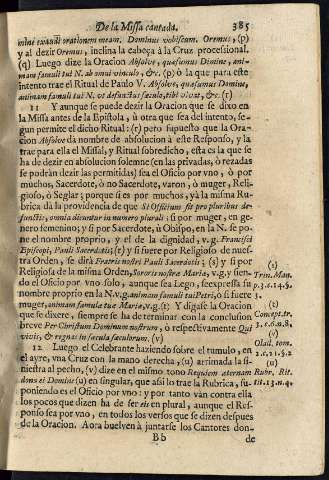 De la Missa cantada. 385
mine exaudi orationem meam. Dominus vobiscum. Oremus, (p)
y al dezir Oremus, inclina la cabeça à la Cruz processional.
(q) Luego dize la Oracion Absolve, quæsumus Domine, ani-
mam famuli tui N. ab omni vinculo, &c. (p) ò la que para este
intento trae el Ritual de Paulo V. Absolve, quæsumus Domine,
animam famuli tui N. ut defunctus sæculo, tibi vivat, &c. (r)
11 Y aunque se puede dezir la Oracion que se dixo en
la Missa antes de la Epistola, ù otra que sea del intento, se-
gun permite el dicho Ritual: (r) pero supuesto que la Ora-
cion Absolve dà nombre de absolucion à este Responso, y la
trae para ella el Missal, y Ritual sobredicho, esta es la que se
ha de dezir en absolucion solemne (en las privadas, ò rezadas
se podràn dezir las permitidas) sea el Oficio por vno, ò por
muchos, Sacerdote, ò no Sacerdote, varon, ò muger, Reli-
gioso, ò Seglar; porque si es por muchos, yà la misma Ru-
brica dà la providencia de que Si Officium fit pro pluribus de-
functis, omnia dicuntur in numero plurali: si por muger, en ge-
nero femenino; y si por Sacerdote, ù Obispo, en la N. se po-
ne el nombre proprio, y el de la dignidad, v.g. Francisci
Episcopi, Pauli Sacerdotis; (r) y si fuere Religioso de nues-
tra Orden, se dirà Fratris nostri Pauli Sacerdotis; (s) y si por
Religiosa de la misma Orden, Sororis nostræ Mariæ, v.g. y sien-
do el Oficio por vno solo, aunque sea Lego, se expressa su
nombre proprio en la N. v.g. animam famuli tui Petri, ò si fuere
muger, animam famulæ tuæ Mariæ, v.g. (t) Y digase la Oracion
que se dixere, siempre se ha de terminar con la conclusion
breve Per Christum Dominum nostrum, ò respectivamente Qui
vivis, & regnas in sæcula sæculorum. (v)
12 Luego el Celebrante haziendo sobre el tumulo, en
el ayre, vna Cruz con la mano derecha, (u) arrimada la si-
niestra al pecho, (v) dize en el mismo tono Requiem æternam
dona ei Domine (u) en singular, que assi lo trae la Rubrica, su-
poniendo es el Oficio por vno: y por tanto van contra ella
los pocos que dizen ha de ser eis en plural, aunque el Res-
ponso sea por vno, en todos los versos que se dizen despues
de la Oracion. Aora buelven à juntarse los Cantores don-
Bb de
(s)
Trin. Man.
(t)
(v)
(u)
Rubr. Rit.